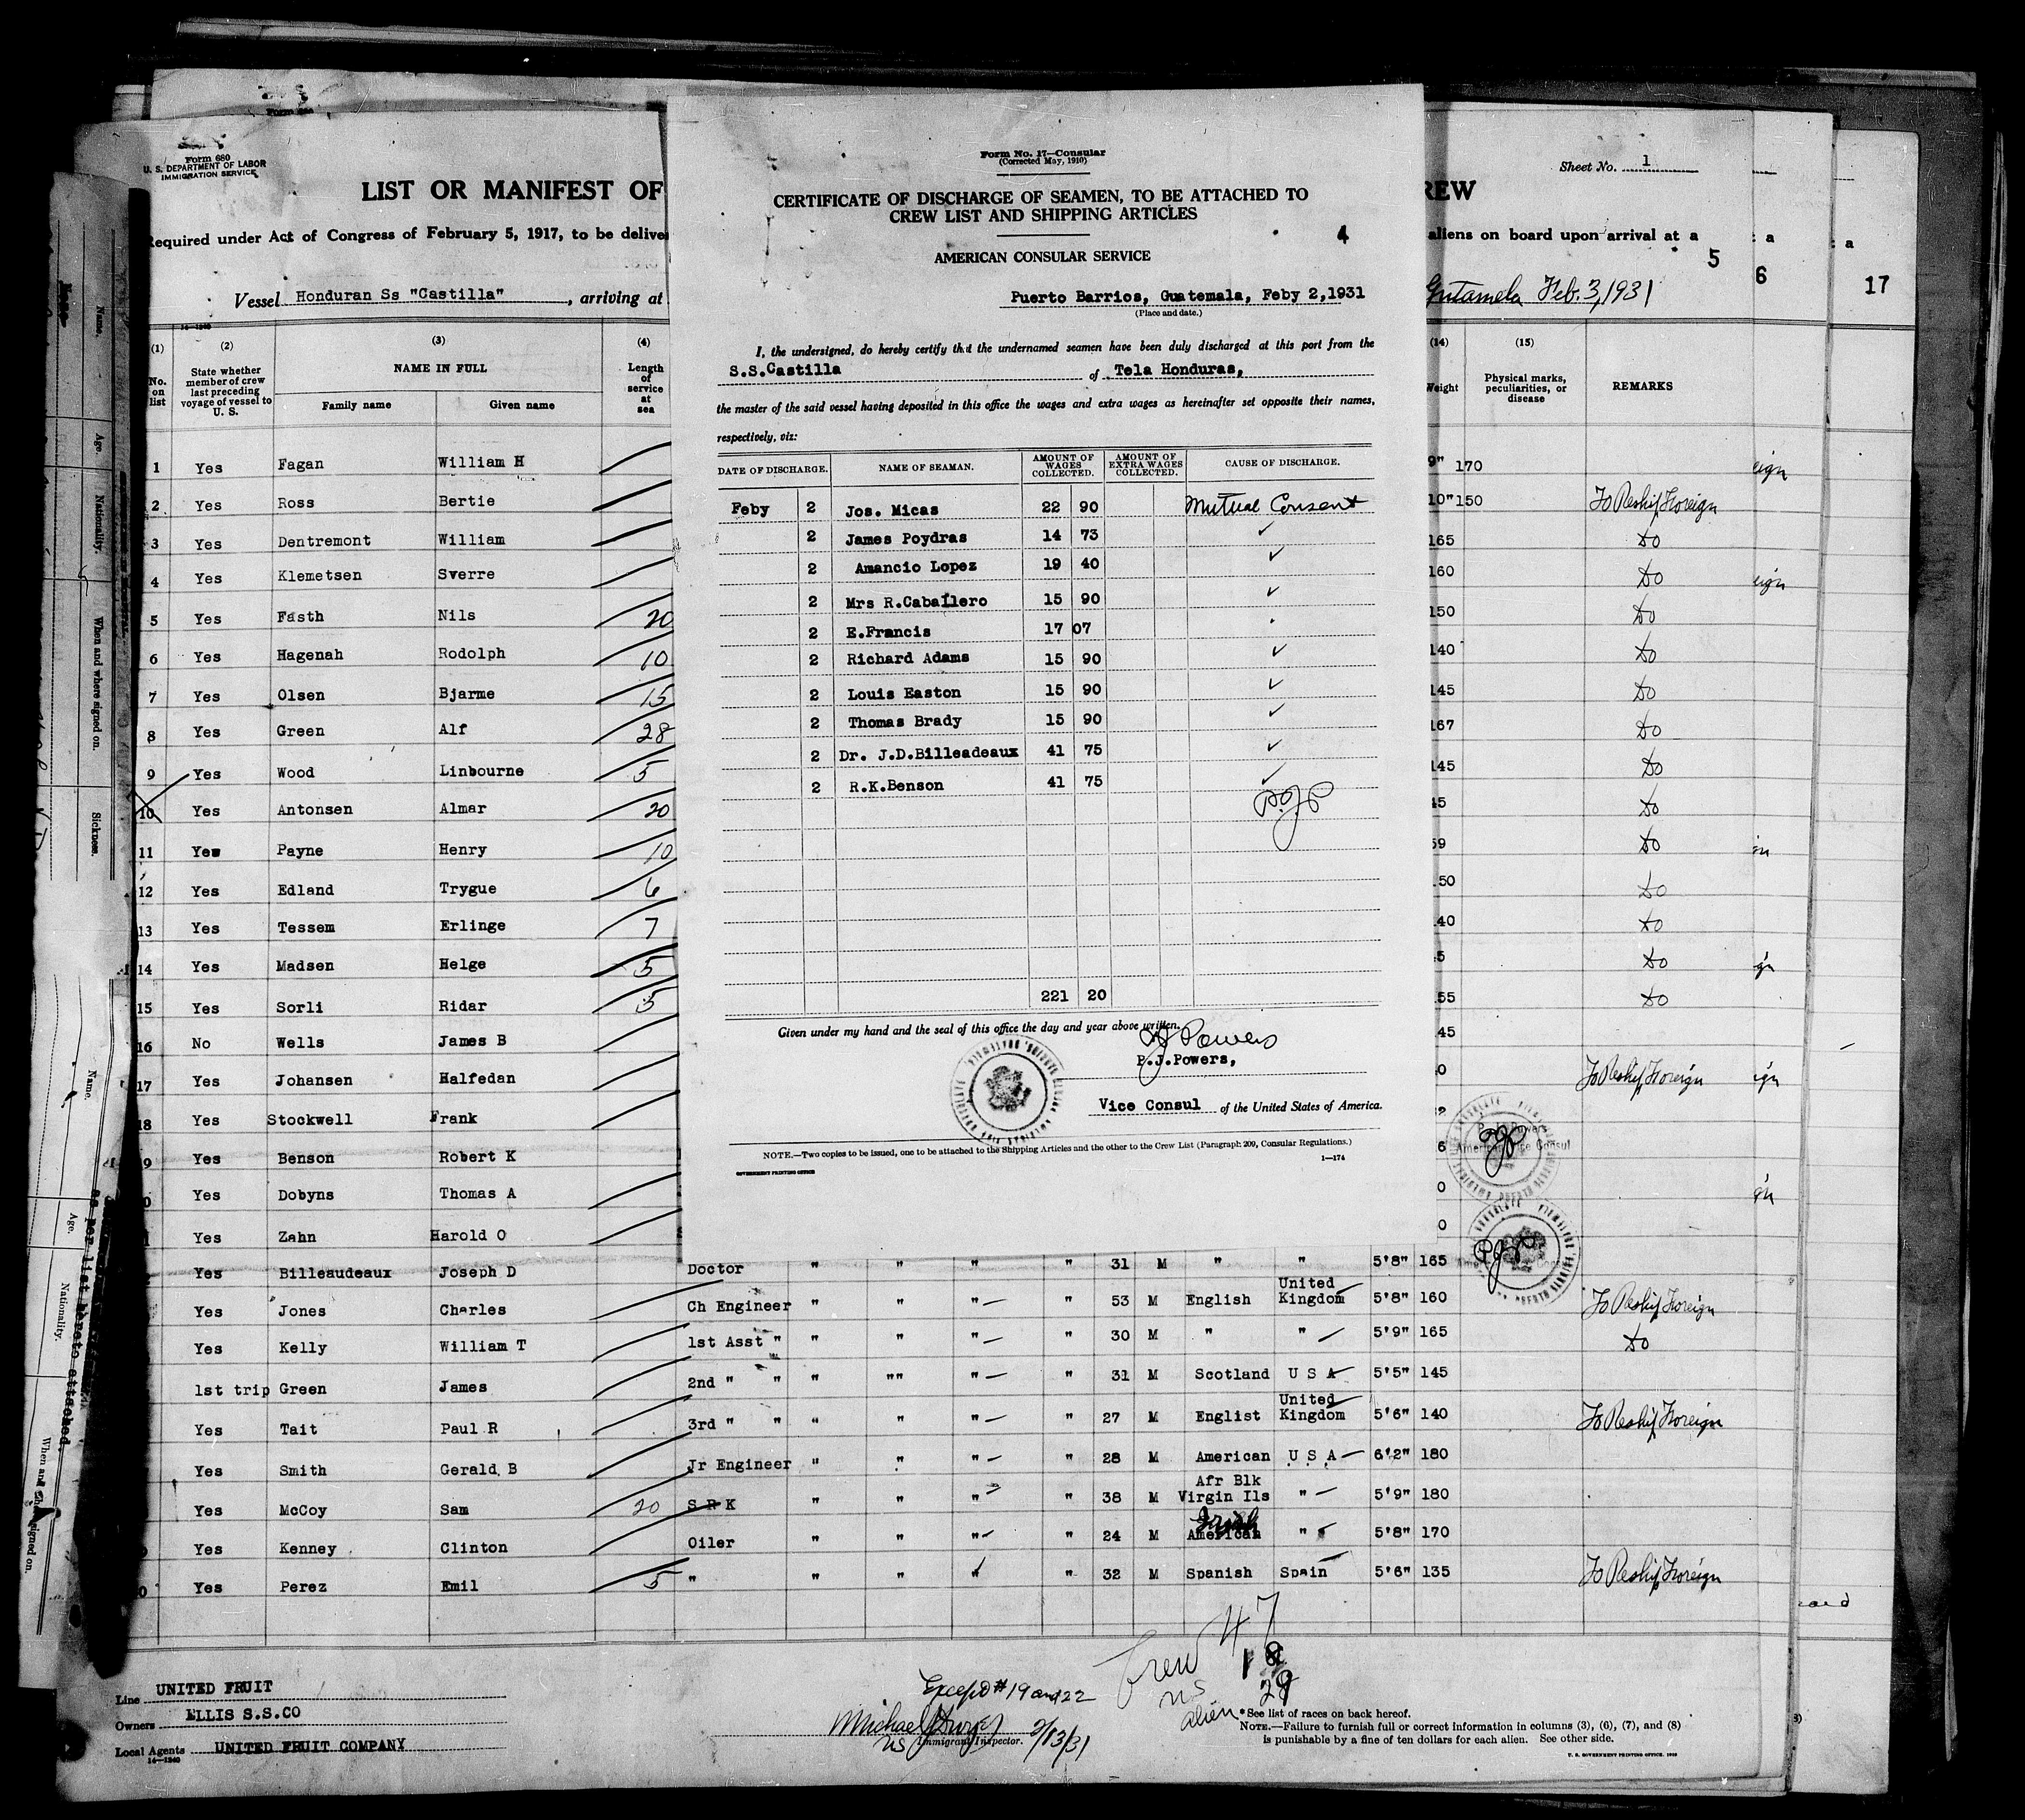 Form 680
U. S. DEPARTMENT OF LABOR
IMMIGRATION SERVICE
LIST OR MANIFEST OF
REW
Sheet No. 1
Required under Act of Congress of February 5, 1917, to be delive
aliens on board upon arrival at a
: a
: a
5
6
17
Vessel Honduran Ss "Castilla", arriving at
Feb. 3, 1931
Form No. 17—Consular
(Corrected May, 1910)
CERTIFICATE OF DISCHARGE OF SEAMEN, TO BE ATTACHED TO
CREW LIST AND SHIPPING ARTICLES
4
AMERICAN CONSULAR SERVICE
Puerto Barrios, Guatemala, Feby 2,1931
(Place and date.)
I, the undersigned, do hereby certify that the undernamed seamen have been duly discharged at this port from the
S.S.Castilla of Tela Honduras,
the master of the said vessel having deposited in this office the wages and extra wages as hereinafter set opposite their names,
respectively, viz:
DATE OF DISCHARGE. NAME OF SEAMAN. AMOUNT OF WAGES COLLECTED. AMOUNT OF EXTRA WAGES COLLECTED. CAUSE OF DISCHARGE.
Feby 2 Jos. Micas 22 90 Mutual Consent
2 James Poydras 14 73
2 Amancio Lopez 19 40
2 Mrs R.Caballero 15 90
2 E.Francis 17 07
2 Richard Adams 15 90
2 Louis Easton 15 90
2 Thomas Brady 15 90
2 Dr. J.D.Billeadeaux 41 75
2 R.K.Benson 41 75
P.J.P
221 20
Given under my hand and the seal of this office the day and year above written.
P J Powers
P.J.Powers,
Vice Consul of the United States of America.
NOTE.—Two copies to be issued, one to be attached to the Shipping Articles and the other to the Crew List (Paragraph 209, Consular Regulations.)
1—174
GOVERNMENT PRINTING OFFICE
(1) (2) (3) (4) (14) (15)
No. on list
State whether member of crew last preceding voyage of vessel to U. S.
NAME IN FULL
Family name Given name
Length of service at sea
Weight
Physical marks, peculiarities, or disease
REMARKS
1 Yes Fagan William H 9" 170
2 Yes Ross Bertie 10" 150 To Reship Foreign
3 Yes Dentremont William 165 Do
4 Yes Klemetsen Sverre 160 Do
5 Yes Fasth Nils 20 150 Do
6 Yes Hagenah Rodolph 10 140 Do
7 Yes Olsen Bjarme 15 145 Do
8 Yes Green Alf 28 167 Do
9 Yes Wood Linbourne 5 145 Do
10 Yes Antonsen Almar 20 45 Do
11 Yes Payne Henry 10 59 Do
12 Yes Edland Trygue 6 50 Do
13 Yes Tessem Erlinge 7 40 Do
14 Yes Madsen Helge 5 5 Do
15 Yes Sorli Ridar 5 55 Do
16 No Wells James B 45
17 Yes Johansen Halfedan 0 To Reship Foreign
18 Yes Stockwell Frank 2
9 Yes Benson Robert K 6
0 Yes Dobyns Thomas A 0
1 Yes Zahn Harold O 0
Yes Billeaudeaux Joseph D Doctor " " " " 31 M " " 5'8" 165
Yes Jones Charles Ch Engineer " " " " 53 M English United Kingdom 5'8" 160 To Reship Foreign
Yes Kelly William T 1st Asst " " " " " 30 M " " 5'9" 165 Do
1st trip Green James 2nd " " " "" " " 31 M Scotland U S A 5'5" 145
Yes Tait Paul R 3rd " " " " " " 27 M Englist United Kingdom 5'6" 140 To Reship Foreign
Yes Smith Gerald B Jr Engineer " " " " 28 M American U S A 6'2" 180
Yes McCoy Sam 20 S R K " " " " 38 M Afr Blk Virgin Ils " 5'9" 180
Yes Kenney Clinton Oiler " " " " 24 M American Irish " 5'8" 170
0 Yes Perez Emil 5 " " " " " 32 M Spanish Spain 5'6" 135 To Reship Foreign
Line UNITED FRUIT
Owners ELLIS S.S.CO
Local Agents UNITED FRUIT COMPANY
14—1240
Except # 19 and 22
Michael
Immigrant Inspector.
2/13/31
Crew 47
US 18
alien 29
*See list of races on back hereof.
NOTE.—Failure to furnish full or correct information in columns (3), (6), (7), and (8)
is punishable by a fine of ten dollars for each alien. See other side.
U. S. GOVERNMENT PRINTING OFFICE
Name. Age. Nationality. When and where signed on. Sickness.
Name. Age. Nationality.
as per list hereto attached.